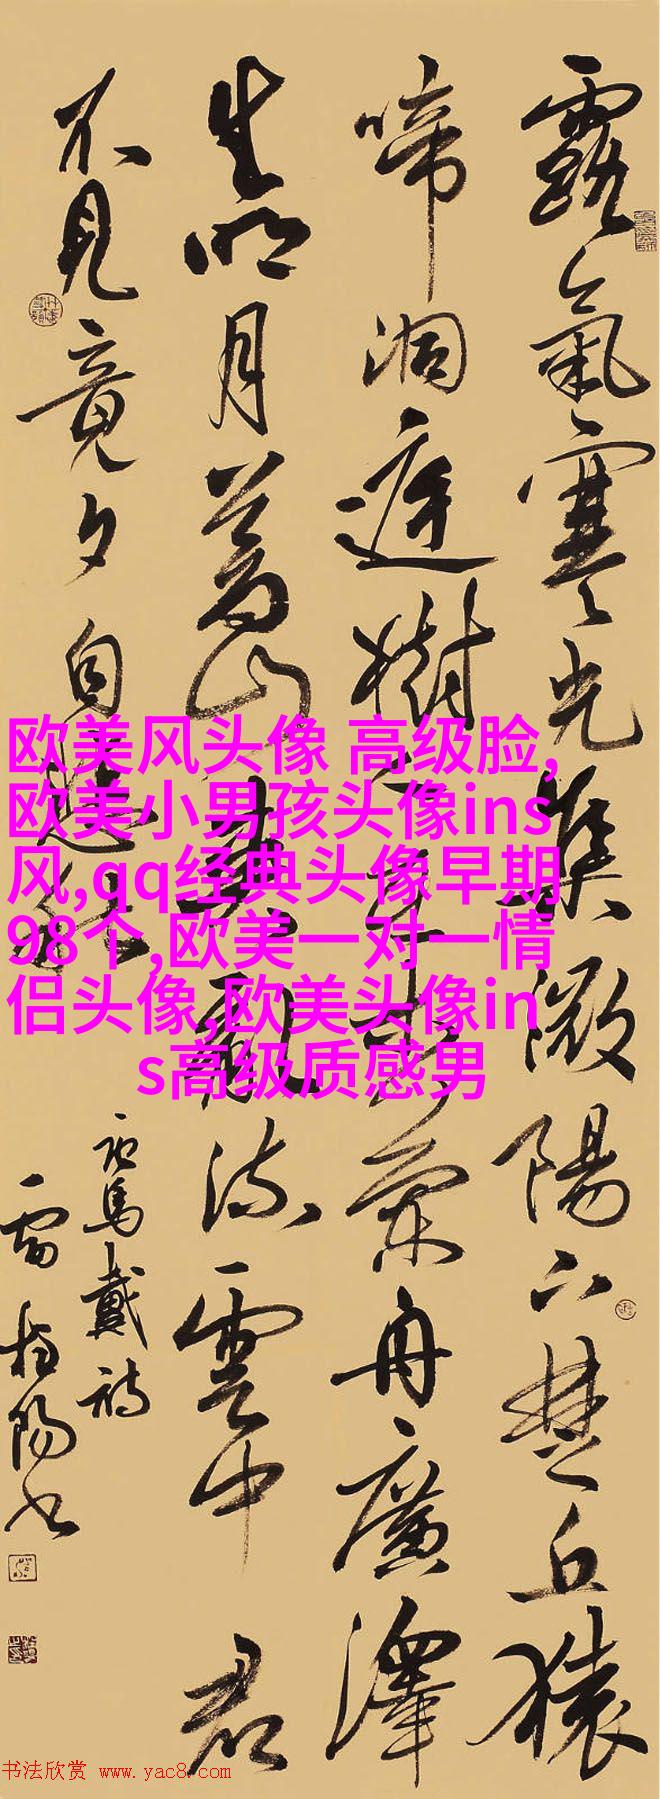 露氣寒光集微陽下楚丘猿
啼洞庭樹人在木蘭舟廣澤
生明月蒼山夾亂流雲中君
不見竟夕自悲秋
馬戴詩
雷陽书
欧美风头像 高级脸,
欧美小男孩头像ins
风,qq经典头像早期
98个,欧美一对一情
侣头像,欧美头像in
s高级质感男
书法欣赏 www.yac8.com